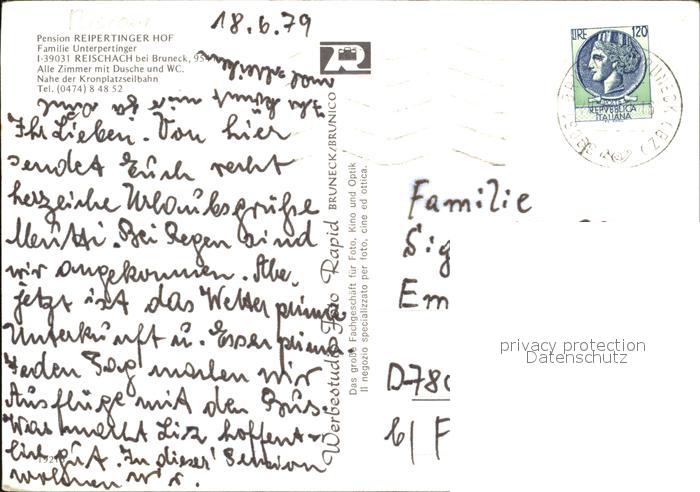 18.6.79
Pension REIPERTINGER HOF
Familie Unterpertinger
I-39031 REISCHACH bei Bruneck, 95
Alle Zimmer mit Dusche und WC.
Nahe der Kronplatzseilbahn
Tel. (0474) 8 48 52
Ihr Lieben. Von hier
sendet Euch recht
herzliche Urlaubsgrüße
Mutti. Bei Regen sind
wir angekommen. Aber
jetzt ist das Wetter prima
Unterkunft u. Essen prima.
Jeden Tag machen wir
Ausflüge mit den Bus.
Was macht Lisa hoffent-
lich gut. In dieser Pension
wohnen wir.
Ihr könnt mir ja auch
mal schreiben
Werbestudio Foto Rapid BRUNECK/BRUNICO
Das große Fachgeschäft für Foto, Kino und Optik
Il negozio specializzato per foto, cine ed ottica.
LIRE 120
REPVBBLICA
ITALIANA
Familie
Sig
Em
D780
b/ F
privacy protection
Datenschutz